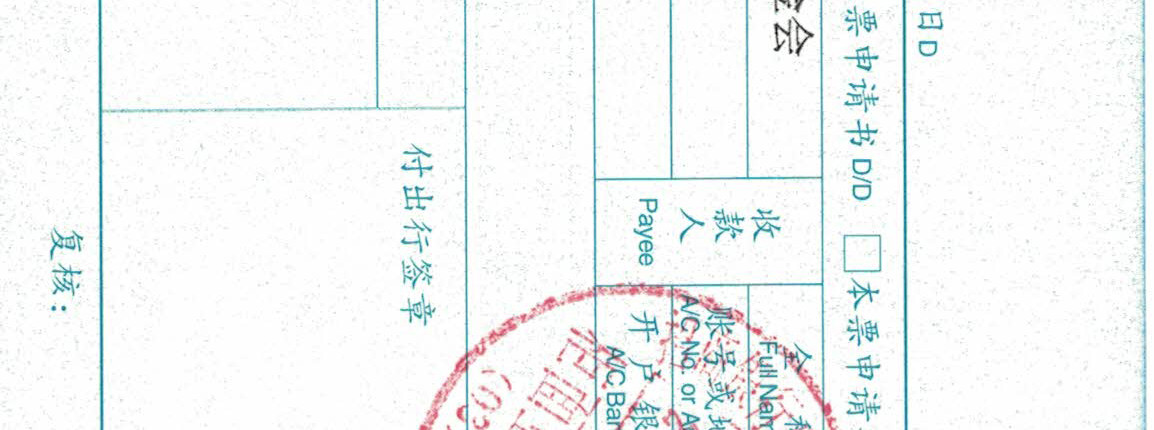 日 D
票申请书 D/D □ 本票申请
会
全
Full Nam
收
款
人
Payee
账号或地
A/C No. or A
开户银
A/C Ban
付出行签章
复核：